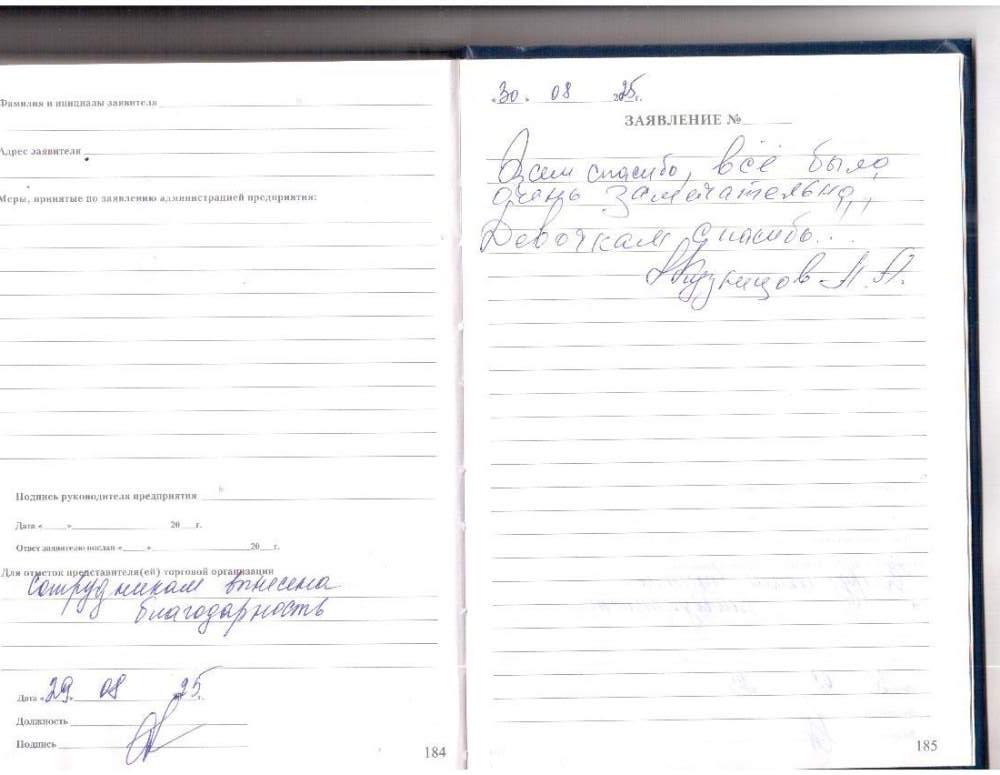 Фамилия и инициалы заявителя
Адрес заявителя
Меры, принятые по заявлению администрацией предприятия:
Подпись руководителя предприятия
Дата « » 20 г.
Ответ заявителю послан « » 20 г.
Для отметок представителя(ей) торговой организации
Сотрудникам вынесена
благодарность
Дата «29» 08 25
Должность
Подпись
184
«30» 08 2025г.
ЗАЯВЛЕНИЕ №
Всем спасибо, всё было
очень замечательно,,,
Девочкам спасибо...
Кузнецов А.А.
185